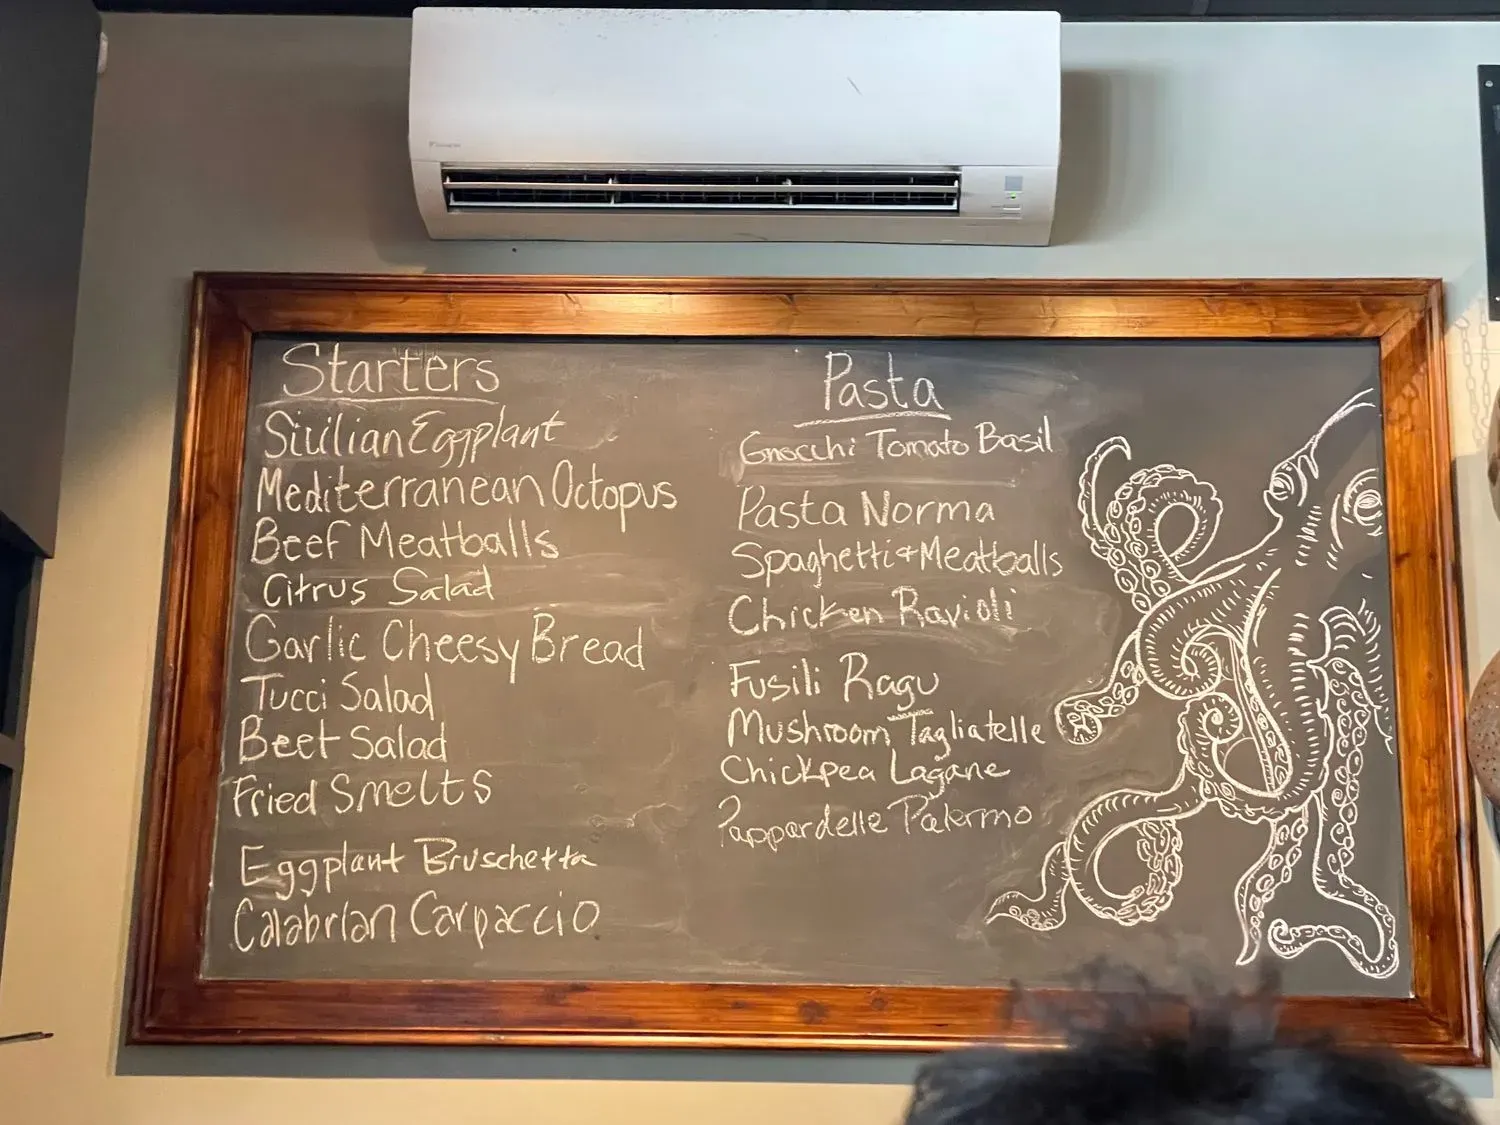 Starters
Sicilian Eggplant
Mediterranean Octopus
Beef Meatballs
Citrus Salad
Garlic Cheesy Bread
Tucci Salad
Beet Salad
Fried Smelts
Eggplant Bruschetta
Calabrian Carpaccio
Pasta
Gnocchi Tomato Basil
Pasta Norma
Spaghetti & Meatballs
Chicken Ravioli
Fusili Ragu
Mushroom Tagliatelle
Chickpea Lagane
Pappardelle Palermo